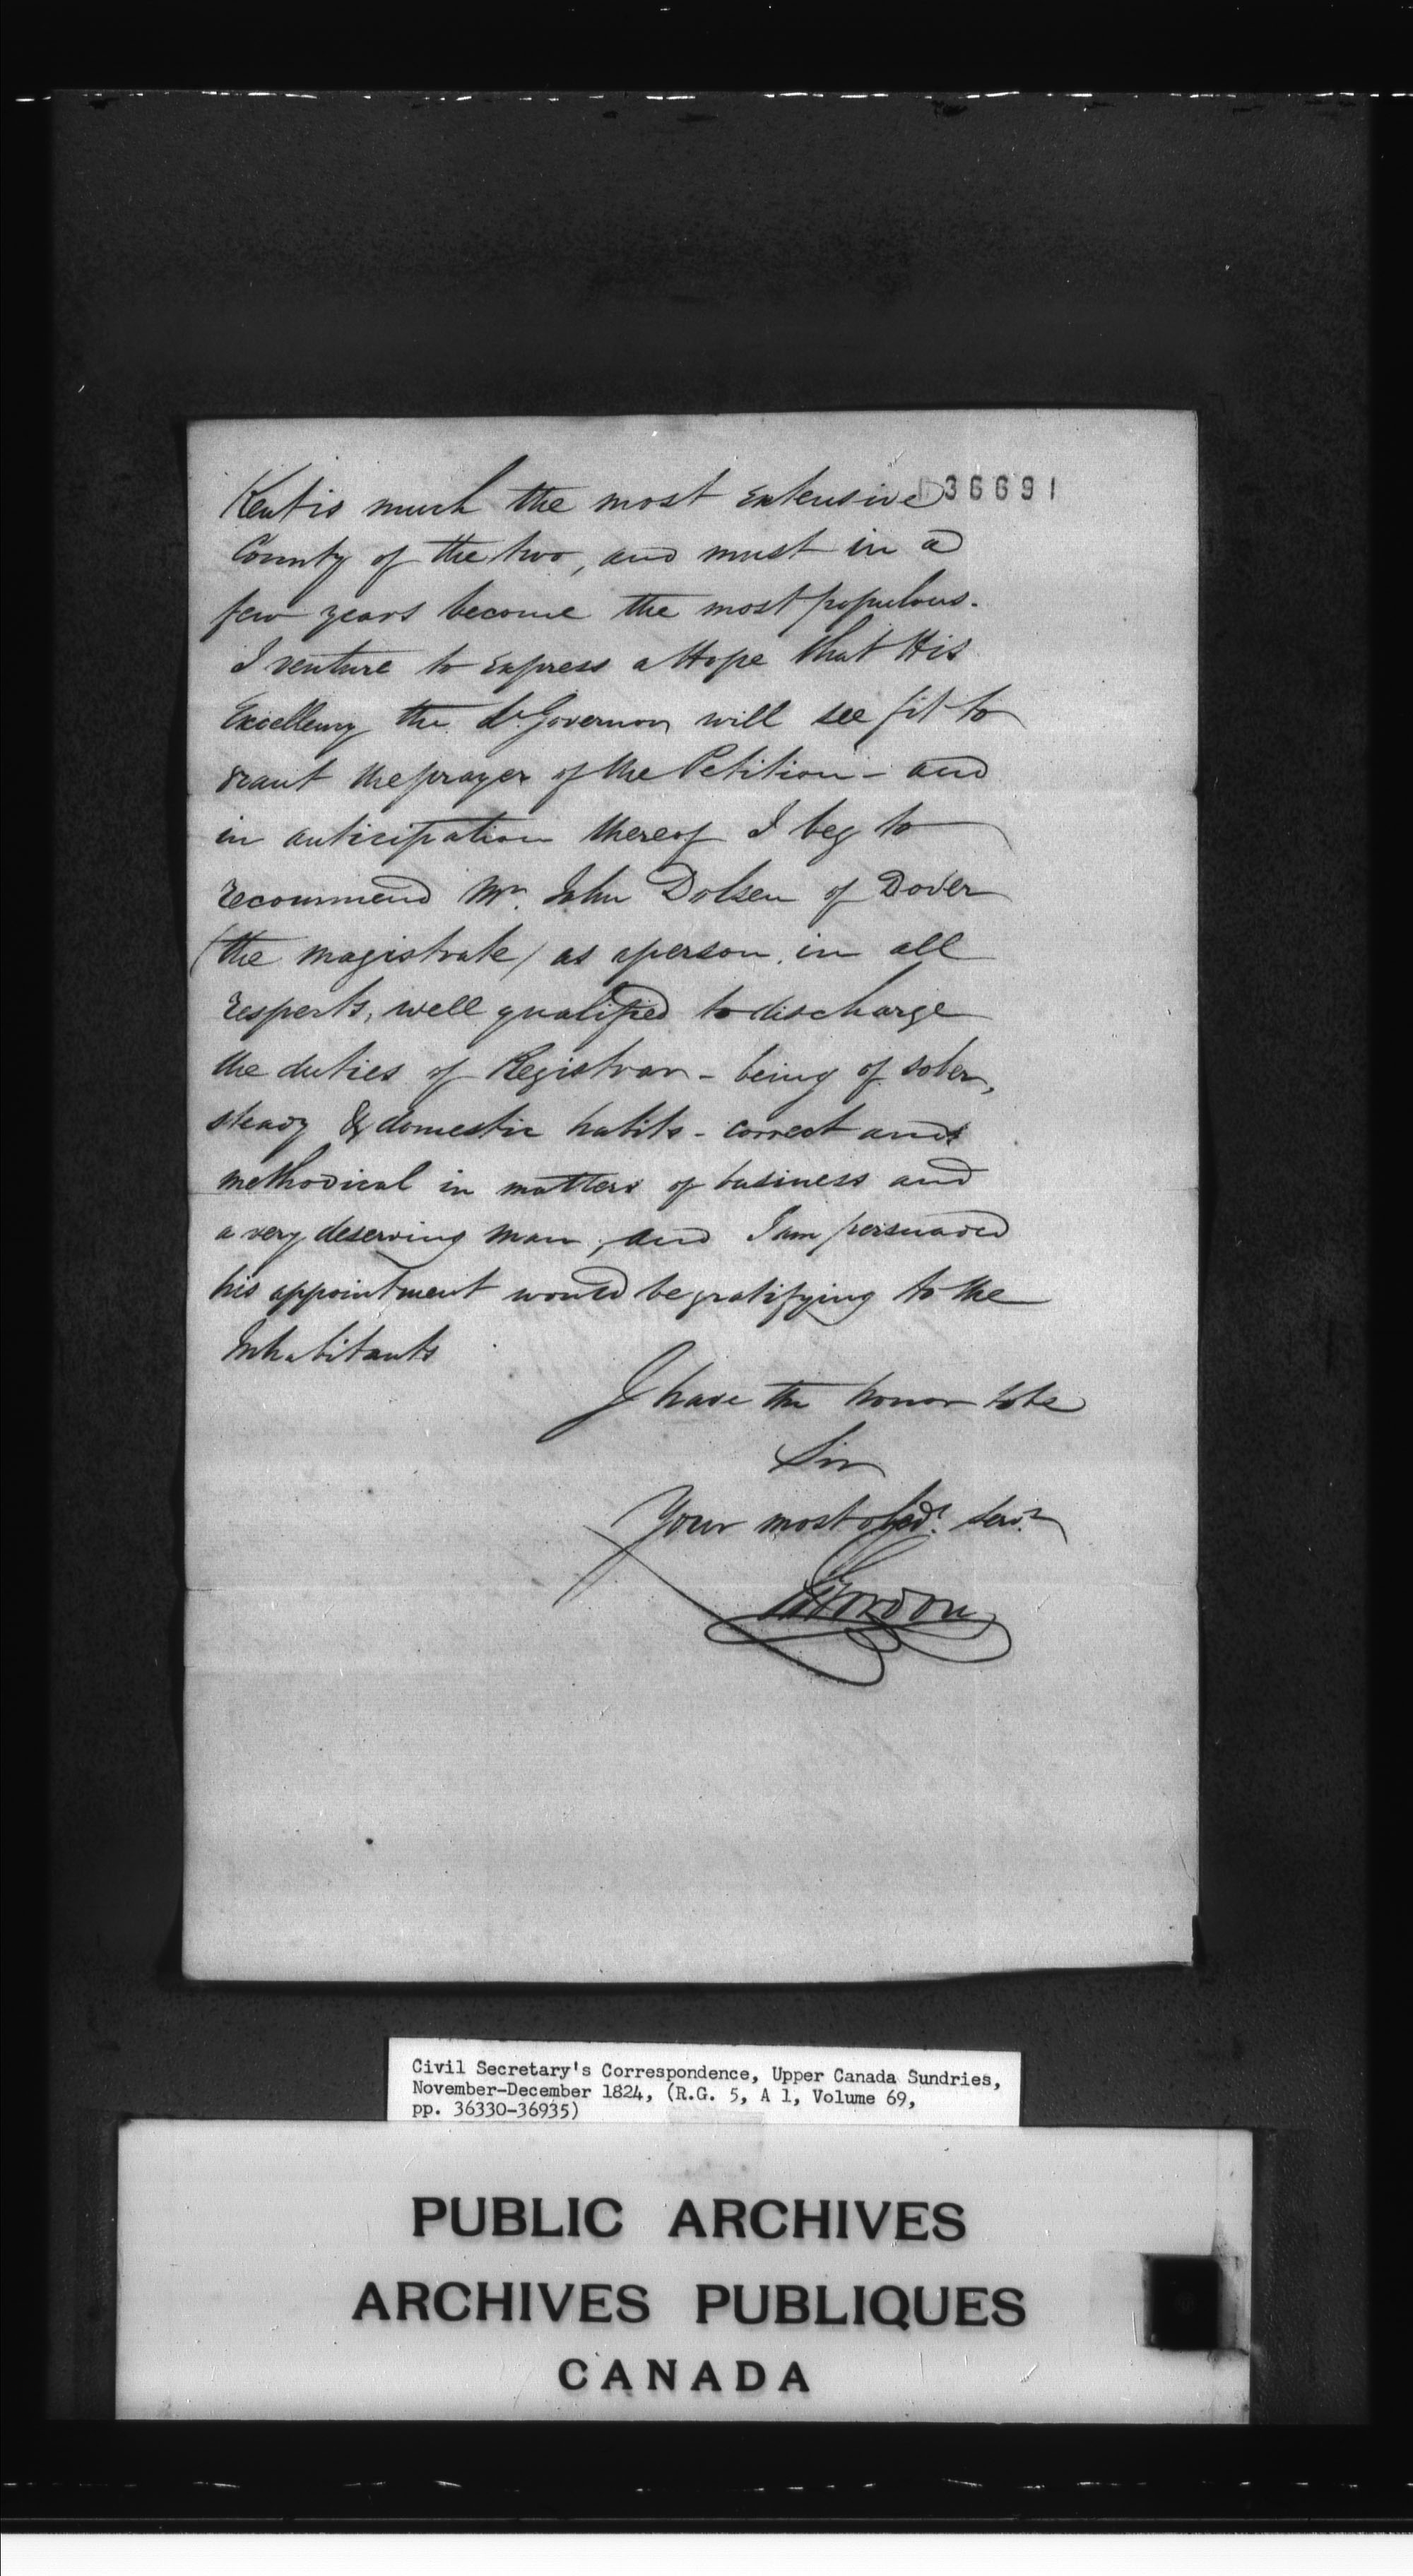 36691
Kent is much the most extensive
County of the two, and must in a
few years become the most populous.
I venture to express a Hope that His
Excellency the Lt. Governor will see fit to
grant the prayer of the Petition - and
in anticipation thereof I beg to
recommend Mr. John Dolsen of Dover
(the magistrate) as a person, in all
respects, well qualified to discharge
the duties of Registrar - being of sober,
steady & domestic habits - correct and
methodical in matters of business and
a very deserving man, and I am persuaded
his appointment would be gratifying to the
Inhabitants
I have the honor to be
Sir
Your most obedt. servt.
Gordon
Civil Secretary's Correspondence, Upper Canada Sundries,
November-December 1824, (R.G. 5, A 1, Volume 69,
pp. 36330-36935)
PUBLIC ARCHIVES
ARCHIVES PUBLIQUES
CANADA